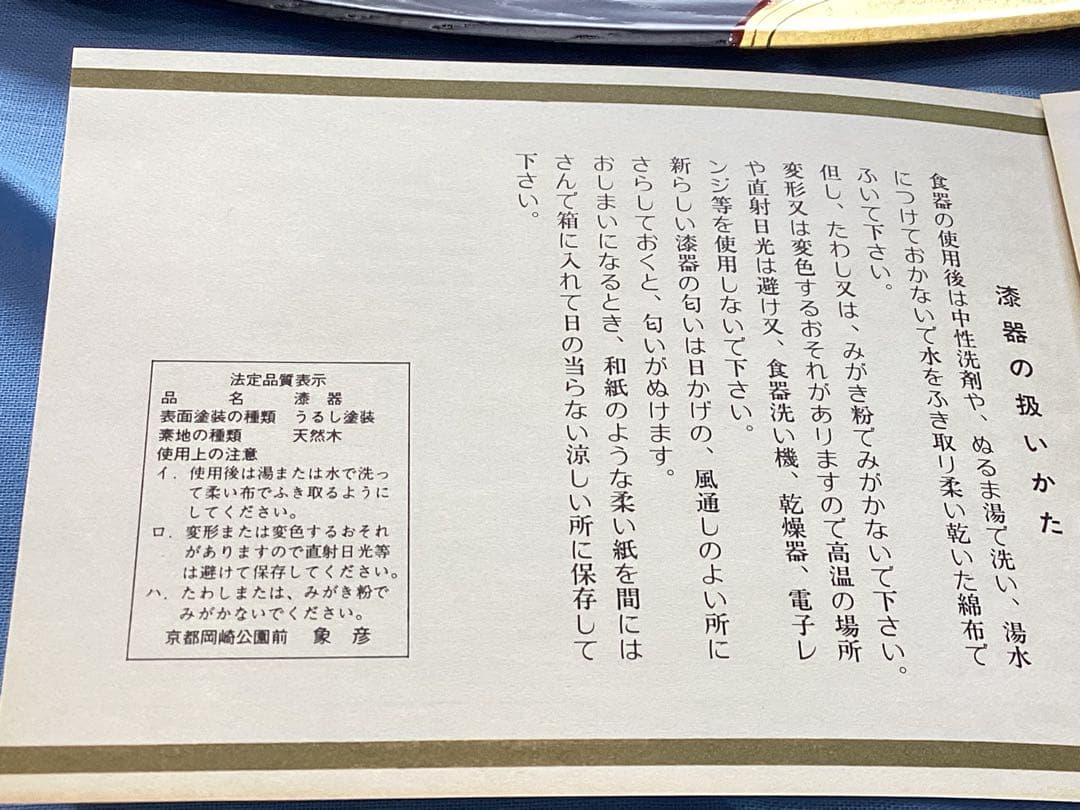 漆器の扱いかた
食器の使用後は中性洗剤や、ぬるま湯で洗い、湯水
につけておかないで水をふき取り柔い乾いた綿布で
ふいて下さい。
但し、たわし又は、みがき粉でみがかないで下さい。
変形又は変色するおそれがありますので高温の場所
や直射日光は避け又、食器洗い機、乾燥器、電子レ
ンジ等を使用しないで下さい。
新らしい漆器の匂いは日かげの、風通しのよい所に
さらしておくと、匂いがぬけます。
おしまいになるとき、和紙のような柔い紙を間には
さんで箱に入れて日の当らない涼しい所に保存して
下さい。
法定品質表示
品名 漆器
表面塗装の種類 うるし塗装
素地の種類 天然木
使用上の注意
イ．使用後は湯または水で洗っ
て柔い布でふき取るように
してください。
ロ．変形または変色するおそれ
がありますので直射日光等
は避けて保存してください。
ハ．たわしまたは、みがき粉で
みがかないでください。
京都岡崎公園前 象彦